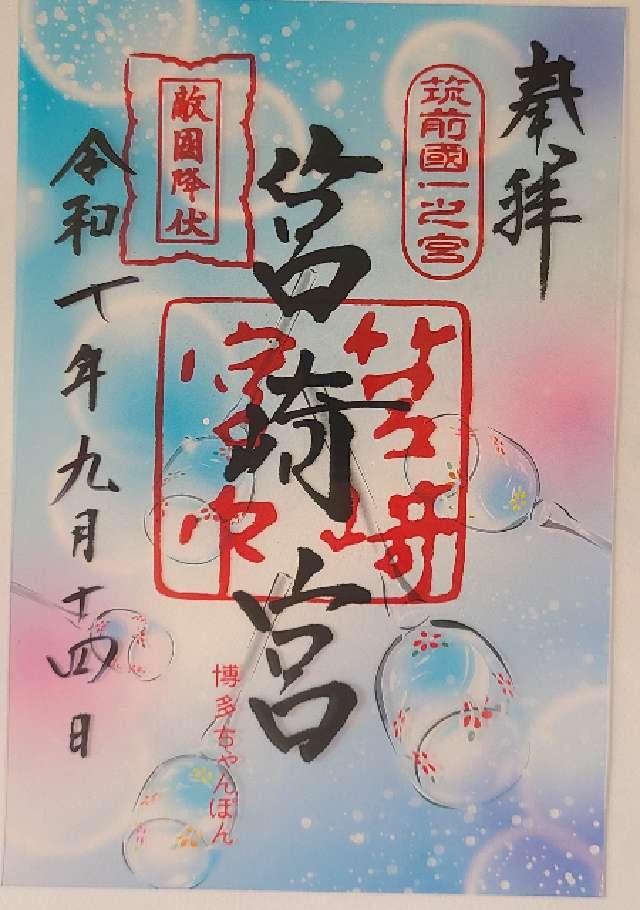 奉拝
筑前國一之宮
筥崎宮
筥崎
宮印
敵国降伏
令和 年九月十四日
博多ちゃんぽん